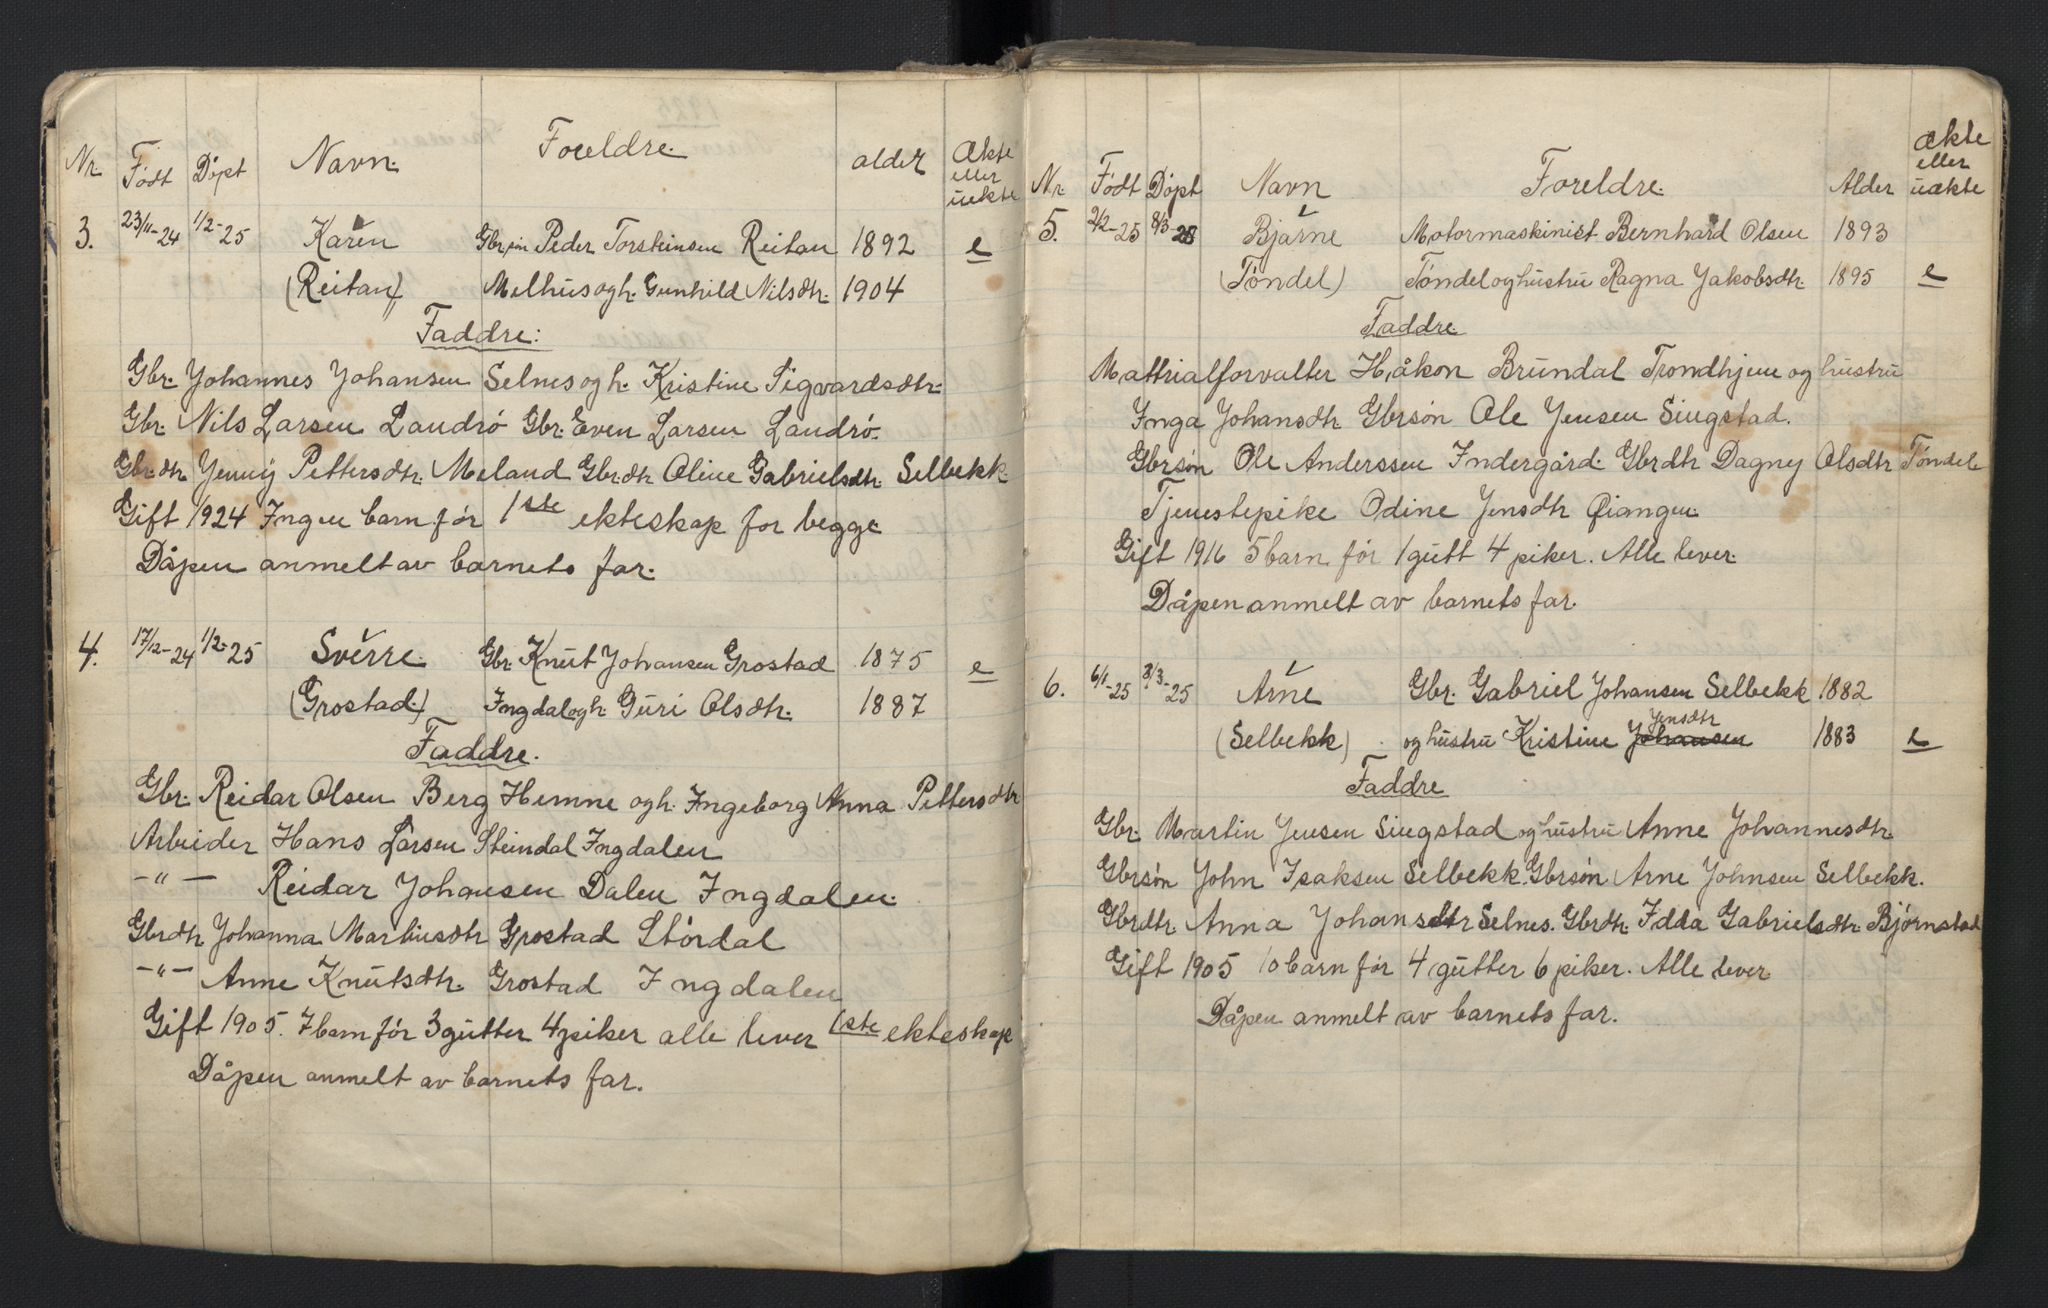 Nr. Født Døpt Navn. Foreldre. alder Ækte eller uekte
3. 23/11-24 1/2-25 Karen Gbr. Peder Torsteinsen Reitan 1892 e
(Reitan) Melhus og h. Gunhild Nilsdtr. 1904
Faddre:
Gbr. Johannes Johansen Selnes og h. Kristine Sigvardsdtr.
Gbr. Nils Larsen Landrø Gbr. Even Larsen Landrø.
Gbr.dtr Jenny Pettersdtr. Meland Gbr.dtr Oline Gabrielsdtr. Selbekk
Gift 1924 Ingen barn før 1ste ekteskap for begge
Dåpen anmelt av barnets far.
4. 17/12-24 1/2-25 Sverre. Gbr. Knut Johansen Grostad 1875 e
(Grostad.) Ingdal og h. Guri Olsdtr. 1887
Faddre.
Gbr. Reidar Olsen Berg Hemne og h. Ingeborg Anna Pettersdtr
Arbeider Hans Larsen Steindal Ingdalen
-"- Reidar Johansen Dalen Ingdalen.
Gbrdtr. Johanna Martiusdtr Grostad Størdal
-"- Anne Knutsdtr. Grostad Ingdalen
Gift 1905. 7 barn før 3 gutter 4 piker alle lever 1ste ekteskap
Dåpen anmelt av barnets far.
Nr. Født Døpt Navn Foreldre. Alder ækte eller uækte
5. 2/2-25 8/3-25 Bjarne Motormaskinist Bernhard Olsen 1893
(Tøndel) Tøndel og hustru Ragna Jakobsdtr. 1895 e
Faddre
Mattrialforvalter Håkon Brundal Trondhjem og hustru
Inga Johansdtr Gbrsøn Ole Jensen Singstad.
Gbrsøn Ole Anderssen Indergård. Gbrdtr Dagny Olsdtr Tøndel
Tjenestepike Odine Jensdtr Qiangen.
Gift 1916 5 barn før 1 gutt 4 piker. Alle lever.
Dåpen anmelt av barnets far.
6. 6/1-25 8/3-25 Arne Gbr. Gabriel Johansen Selbekk 1882
(Selbekk) og hustru Kristine Johansen Jensdtr 1883 e
Faddre
Gbr. Martin Jensen Singstad og hustru Anne Johannesdtr.
Gbrsøn John Isaksen Selbekk. Gbrsøn Arne Johnsen Selbekk.
Gbrdtr. Anna Johansdtr Selnes. Gbrdtr. Idda Gabrielsdtr. Bjørnstad
Gift 1905 10 barn før 4 gutter 6 piker. Alle lever
Dåpen anmelt av barnets far.